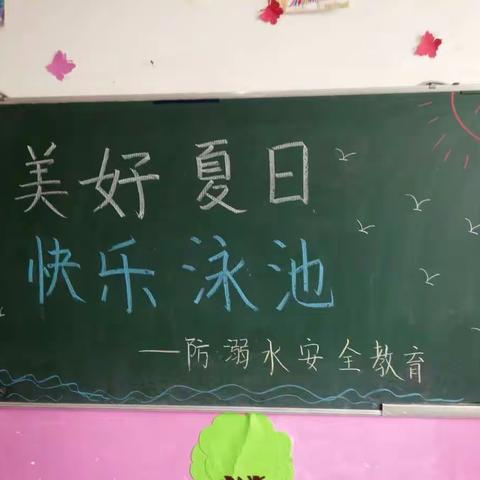 美好夏日
快乐泳池
—防溺水安全教育